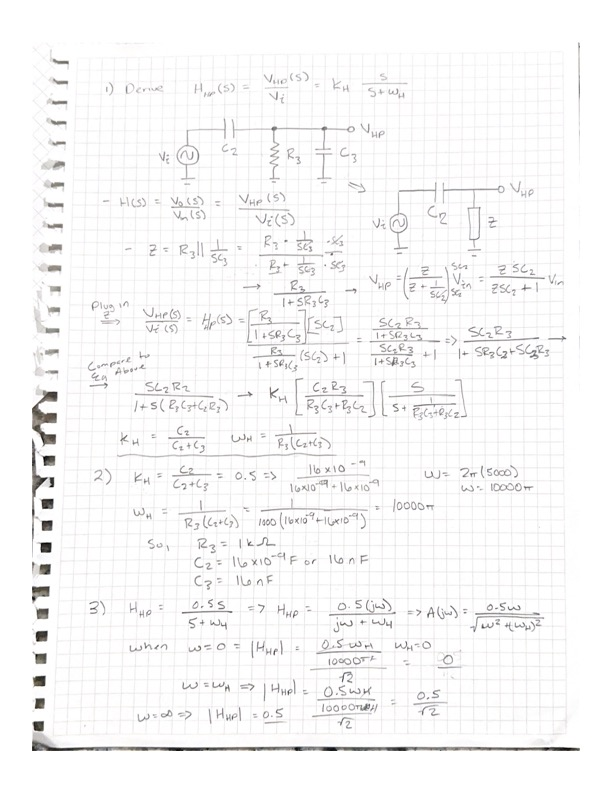 1) Derive H_HP(S) = V_HP(S) / V_i = K_H S / (S + ω_H)
V_i C_2 R_3 C_3 V_HP
V_i C_2 Z V_HP
- H(S) = V_o(S) / V_in(S) = V_HP(S) / V_i(S)
- Z = R_3 || 1/SC_3 = (R_3 · 1/SC_3 · SC_3) / (R_3 + 1/SC_3 · SC_3)
→ R_3 / (1 + SR_3C_3) → V_HP = (Z / (Z + 1/SC_2)) SC_2/SC_2 V_in = Z SC_2 / (ZSC_2 + 1) V_in
Plug in Z ⇒ V_HP(S) / V_i(S) = H_HP(S) = [R_3 / (1 + SR_3C_3)][SC_2] / (R_3 / (1 + SR_3C_3) (SC_2) + 1) = (SC_2R_3 / (1 + SR_3C_3)) / (SC_2R_3 / (1 + SR_3C_3) + 1) => SC_2R_3 / (1 + SR_3C_3 + SC_2R_3) →
Compare to Eq Above
→ SC_2R_2 / (1 + S(R_3C_3 + C_2R_3)) → K_H [C_2R_3 / (R_3C_3 + R_3C_2)] [S / (S + 1/(R_3C_3 + R_3C_2))]
K_H = C_2 / (C_2 + C_3) ω_H = 1 / (R_3(C_2 + C_3))
2) K_H = C_2 / (C_2 + C_3) = 0.5 => 16 x 10^-9 / (16x10^-9 + 16x10^-9) ω = 2π(5000)
ω = 10000π
ω_H = 1 / (R_3(C_2 + C_3)) = 1 / (1000 (16x10^-9 + 16x10^-9)) = 10000π
So, R_3 = 1kΩ
C_2 = 16x10^-9 F or 16nF
C_3 = 16nF
3) H_HP = 0.5S / (S + ω_H) => H_HP = 0.5(jω) / (jω + ω_H) => A(jω) = 0.5ω / √(ω² + (ω_H)²)
when ω = 0 = |H_HP| = 0.5ω_H / (10000π² / √2) ω_H = 0 = 0
ω = ω_H => |H_HP| = 0.5ω_H / (10000πH / √2) = 0.5 / √2
ω = ∞ => |H_HP| = 0.5